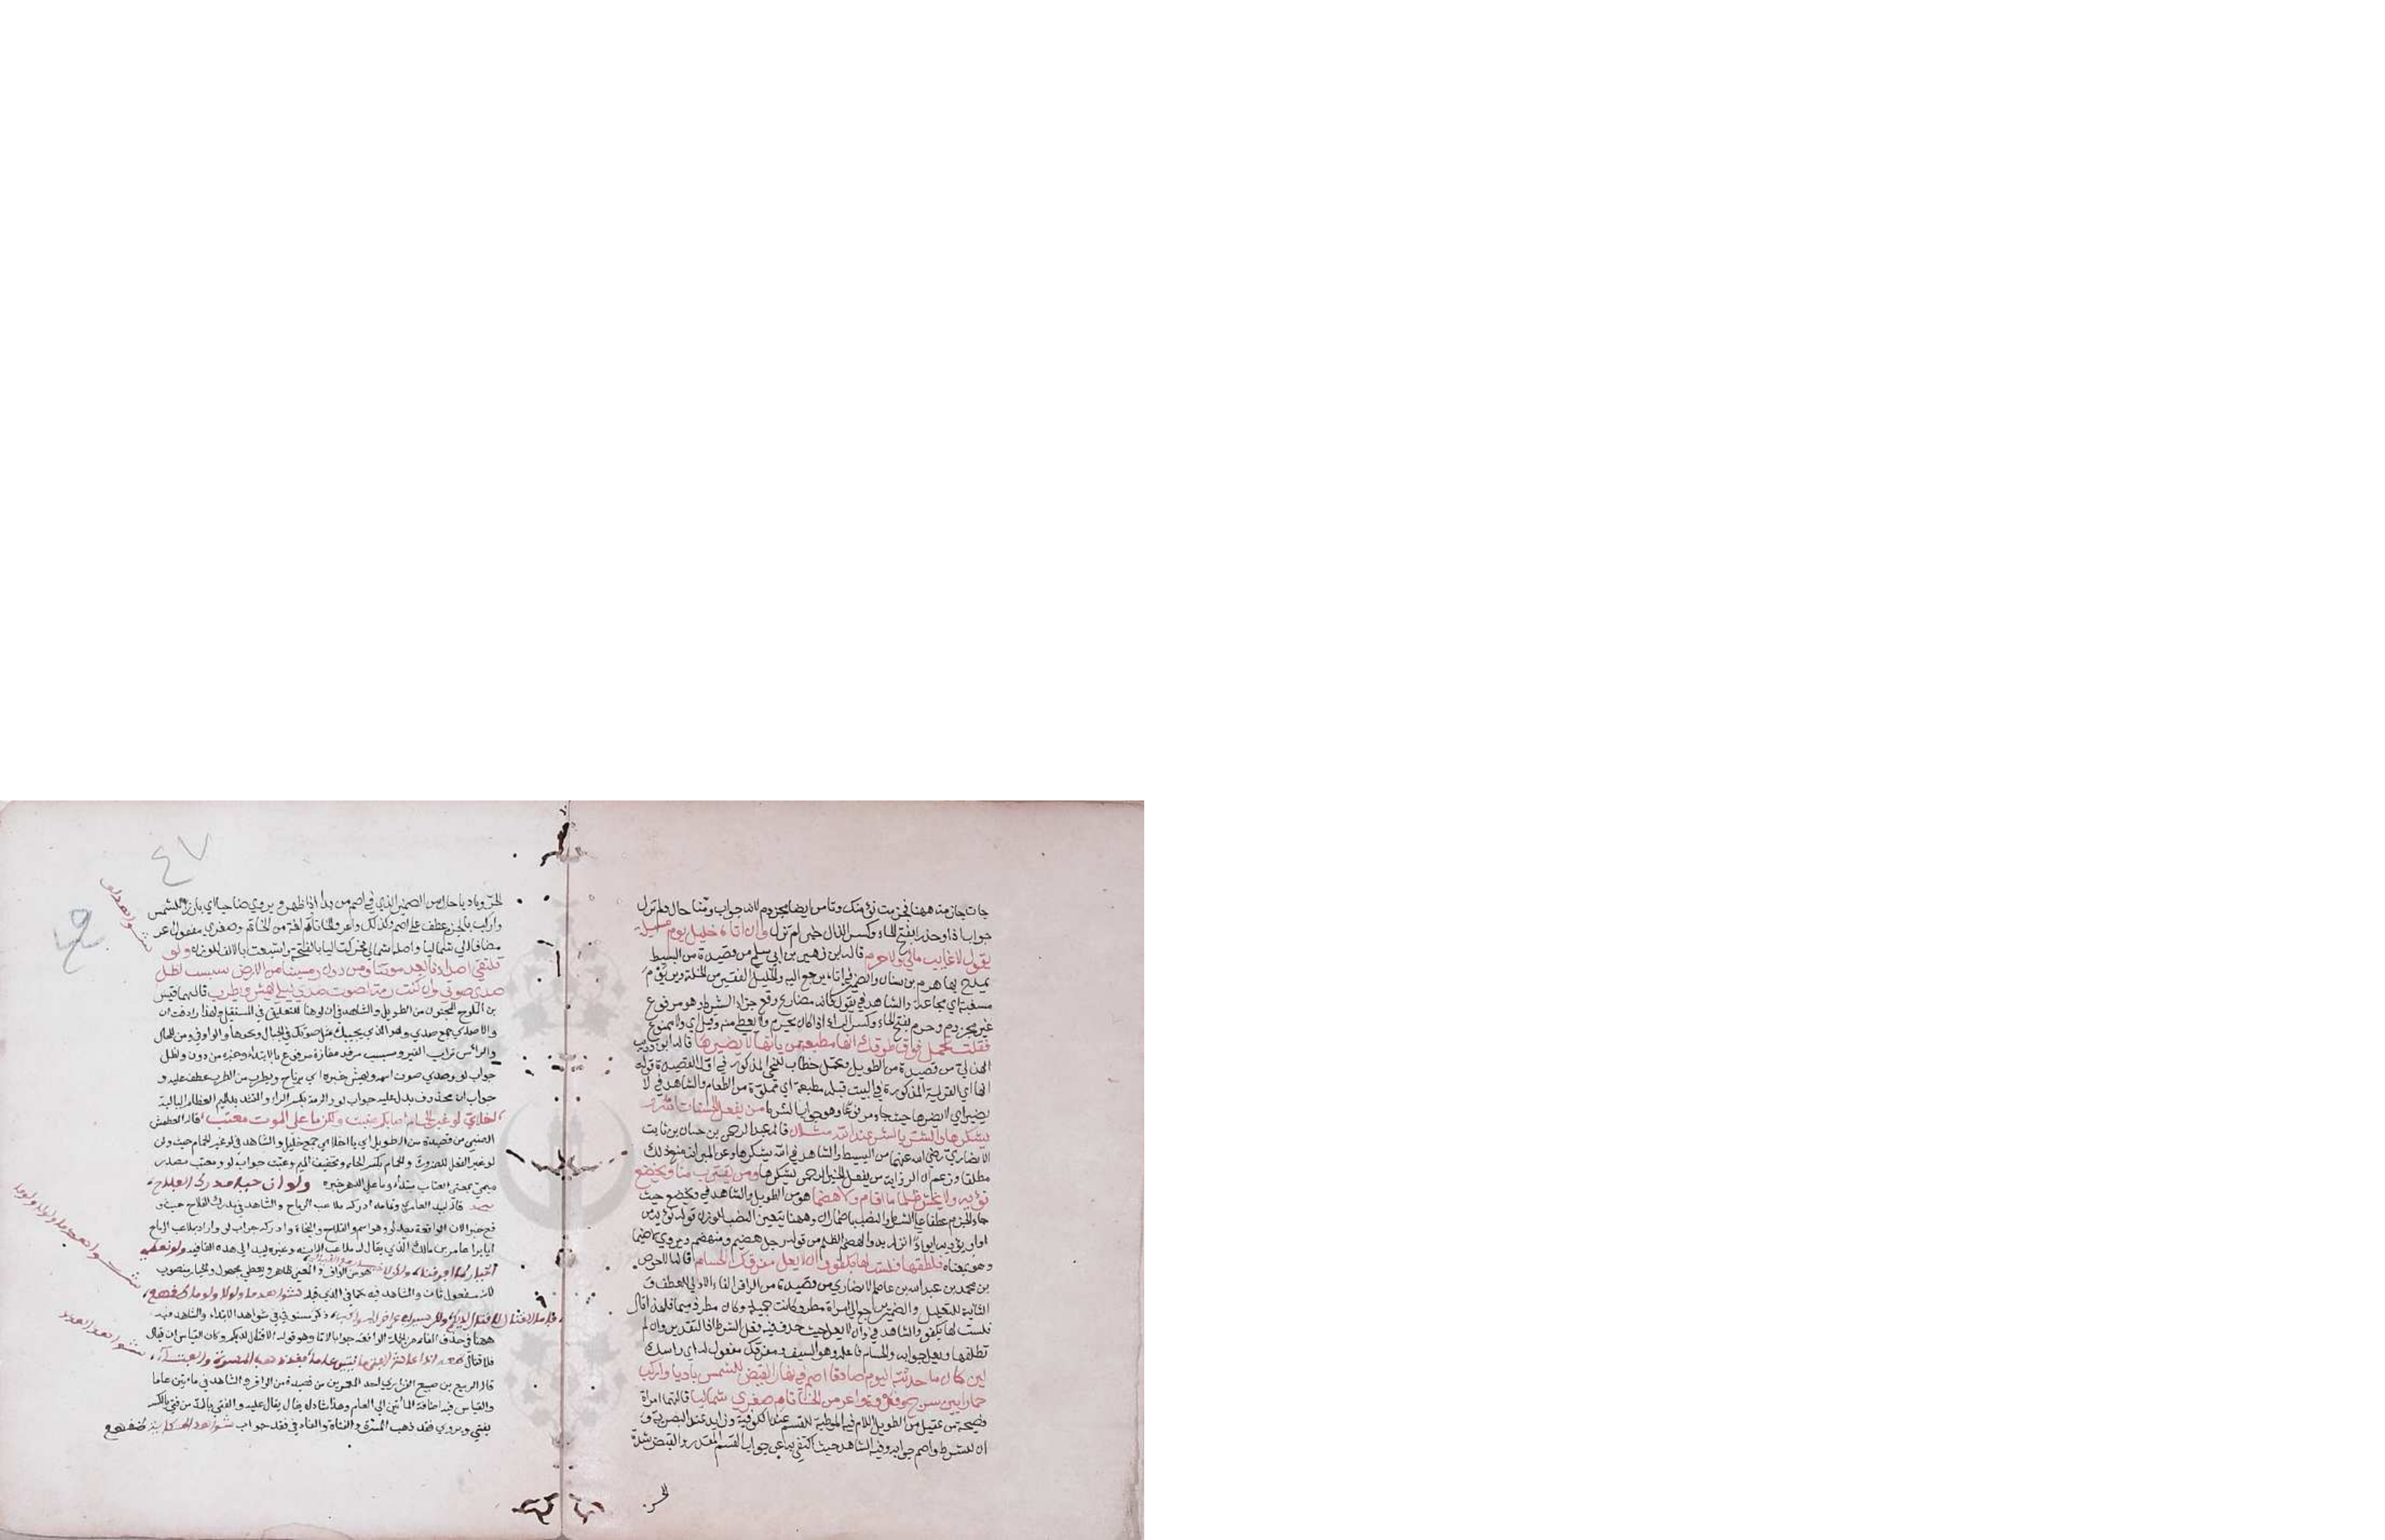 جات جازمة ههنا فجزمت نؤمنك وتامن ايضا مجزوم لانه جواب ومنا حال ولم تزل
جوابا ذا وحذرا بفتح الحاء وكسر الذال خبر لم تزل وان اتاه خليل يوم مسئلة
يقول لا غايب مالي ولا حرم قاله ابن زهير بن ابي سلمى من قصيدة من البسيط
يمدح بها هرم بن سنان والضمير في اتاه يرجع اليه والخليل الفقير من الخلة ويروى يوم
مسغبة اي مجاعة والشاهد في يقول فانه مضارع وقع جزاء الشرط وهو مرفوع
غير مجزوم وحرم بفتح الحاء وكسر الراء اذا كان يحرم ولا يعطي منه وقيل اي ولا ممنوع
فقلت تحمل فوق طوقك انها مطبعة من ياتها لا يضيرها قاله ابو ذويب
الهذلي من قصيدة من الطويل وتحمل خطاب للبختي المذكور في اول القصيدة قوله
انها اي القرية المذكورة في البيت قبله مطبعة اي مملوة من الطعام والشاهد في لا
يضير اي لا يضرها حيث جاء مرفوعا وهو جواب الشرط من يفعل الحسنات الله
يشكرها والشر بالشر عند الله مثلان قاله عبد الرحمن بن حسان بن ثابت
الانصاري رضي الله عنهما من البسيط والشاهد في الله يشكرها وعن المبرد انه منع ذلك
مطلقا وزعم ان الرواية من يفعل الخير الرحمن يشكرها ومن يقترب منا ويخضع
نؤويه ولا يخش ظلما ما اقام ولا هضما هو من الطويل والشاهد في ويخضع حيث
جاء الجزم عطفا على الشرط والنصب باضمار ان وههنا يتعين النصب للوزن قوله نؤويه من
اوى يؤوي ايواء اذا نزل به والهضم الظلم من قوله رجل هضيم ومنهضم ويروى ضيما
وهو بمعناه فطلقها فلست لها بكفو والا يعل مفرقك الحسام قاله الاحوص
بن محمد بن عبد الله بن عاصم الانصاري من قصيدة من الوافر الفاء الاولى للعطف و
الثانية للتعليل والضمير يرجع الى امراة مطر وكانت جميلة وكان مطر دميما فلهذا قال
فلست لها بكفو والشاهد في وان لا يعل حيث حذف فيه فعل الشرط اذ التقدير وان لم
تطلقها ويعل جوابه والحسام فاعله وهو السيف ومفرقك مفعوله اي راسك
لين كان ما حدثته اليوم صادقا اصم في نهار القيض للشمس باديا واركب
حمارا بين سرج وفروة واعر من الخاتام صغرى شماليا قالتها امراة
فصيحة من عقيل من الطويل اللام فيه الموطئة للقسم عند الكوفية وزايدة عند البصرية و
ان للشرط واصم جوابه وفيه الشاهد حيث اكتفى به عن جواب القسم المقدر والقيض شدة
الحر
٤٧
الحر وباديا حال من الضمير الذي في اصم من بدا اذا ظهر ويروى ضاحيا اي بارزا للشمس
واركب بالجزم عطف على اصم وكذلك واعر والخاتام لغة من الخاتم وصغرى مفعول اعر
مضافا الى شماليا واصله شمالي فحركت اليا بالفتحة واشبعت بالالف للوزن ولو
تلتقي اصداؤنا بعد موتنا ومن دون رمسينا من الارض سبسب لظل
صدى صوتي وان كنت رمة لصوت صدى ليلى يهش ويطرب قالهما قيس
بن الملوح المجنون من الطويل والشاهد في ان لو هنا للتعليق في المستقبل ولهذا رادفت ان
والاصداء جمع صدى وهو الذي يجيبك مثل صوتك في الجبال ونحوها والواو في ومن للحال
والرمس تراب القبر وسبسب مرفوع بالابتداء وخبره من دون ولظل
جواب لو وصدى صوت اسمه ويهش خبره اي يرتاح ويطرب من الطرب عطف عليه و
جواب ان محذوف يدل عليه جواب لو والرمة بكسر الراء والتشديد الميم العظام البالية
اخلاي لو غير الحمام اصابكم عتبت ولكن ما على الموت معتب قاله الغطمش
الضبي من قصيدة من الطويل اي يا اخلاي جمع خليل والشاهد في لو غير الحمام حيث ولي
لو غير الفعل للضرورة والحمام بكسر الحاء وتخفيف الميم وعتبت جواب لو ومعتب مصدر
ميمي بمعنى العتاب مبتدا وما على الدهر خبره ولو ان حيا مدرك الفلاح
قاله لبيد العامري وتمامه ادركه ملاعب الرماح والشاهد في مدرك الفلاح حيث و
قع خبرا لان الواقعة بعد لو وهو اسم والفلاح والنجاة وادركه جواب لو واراد بملاعب الرماح
ابا براء عامر بن مالك الذي يقال له ملاعب الاسنة وغيره لبيد الى هذه القافية ولو نعطى
الخيار لما افترقنا ولكن هو من الوافر والمعنى ظاهر ويعطى مجهول والخيار منصوب
لانه مفعول ثان والشاهد فيه كما في الذي قبله شواهد اما ولولا ولوما
فاما القتال لا قتال لديكم ولكن سيرا في عراض المواكب ذكر مستوفى في شواهد الابتداء والشاهد فيه
ههنا في حذف الفاء من الجملة الواقعة جوابا لاما وهو قوله لا قتال لديكم وكان القياس ان يقال
فلا قتال اذا عاش الفتى مايتين عاما فقد ذهب المسرة والفتاء
قاله الربيع بن ضبيع الفزاري احد المعمرين من قصيدة من الوافر والشاهد في مايتين عاما
والقياس فيه اضافة المائتين الى العام وهذا شاذ لا يقال يقال عليه والفتى بالمد من فتى بالكسر
يفتى ويروى فقد ذهب المسرة والفتاة والفاء في فقد جواب شواهد الحكاية
شواهد لو
شواهد اما ولولا ولوما
شواهد العدد